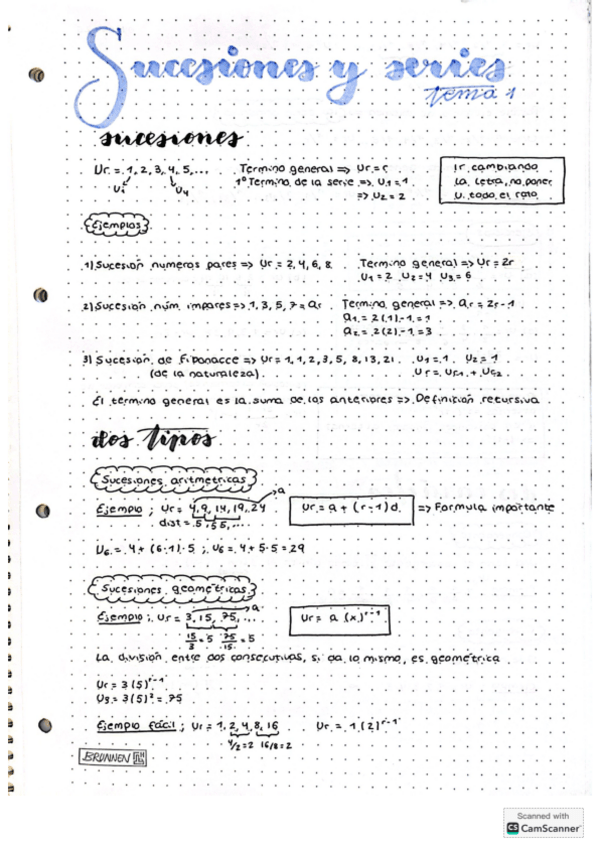 Sucesiones y series
tema 1
sucesiones
Ur = 1, 2, 3, 4, 5,... Termino general => Ur = r
U1 U4 1º Termino de la serie => U1 = 1
=> U2 = 2
Ir cambiando
la letra, no poner
U todo el rato
Ejemplos
1) Sucesión numeros pares => Ur = 2, 4, 6, 8 Termino general => Ur = 2r
U1 = 2 U2 = 4 U3 = 6
2) Sucesión núm. impares => 1, 3, 5, 7 = ar Termino general => ar = 2r - 1
a1 = 2(1) - 1 = 1
a2 = 2(2) - 1 = 3
3) Sucesión de Fibonacce => Ur = 1, 1, 2, 3, 5, 8, 13, 21 U1 = 1 U2 = 1
(de la naturaleza) Ur = Ur-1 + Ur-2
El termino general es la suma de los anteriores => Definición recursiva
dos tipos
Sucesiones aritmetricas
Ejemplo ; Ur = 4, 9, 14, 19, 24 a Ur = a + (r-1)d => Formula importante
dist = 5 5 5, ...
U6 = 4 + (6-1)·5 ; U6 = 4 + 5·5 = 29
Sucesiones geométricas
Ejemplo ; Ur = 3, 15, 75, ... a Ur = a (x)^r-1
15/3 = 5 75/15 = 5
La división entre dos consecutivas, si da lo mismo, es geométrica
Ur = 3(5)^r-1
U3 = 3(5)² = 75
Ejemplo fácil ; Ur = 1, 2, 4, 8, 16 Ur = 1(2)^r-1
4/2=2 16/8=2
BRUNNEN
Scanned with
CS CamScanner